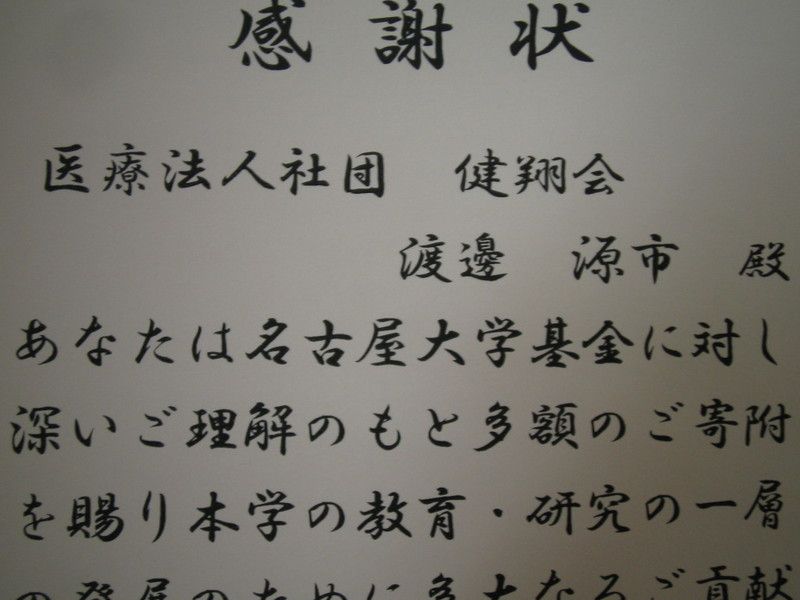 感謝状
医療法人社団 健翔会
渡邊 源市 殿
あなたは名古屋大学基金に対し
深いご理解のもと多額のご寄附
を賜り本学の教育・研究の一層
の発展のために多大なるご貢献